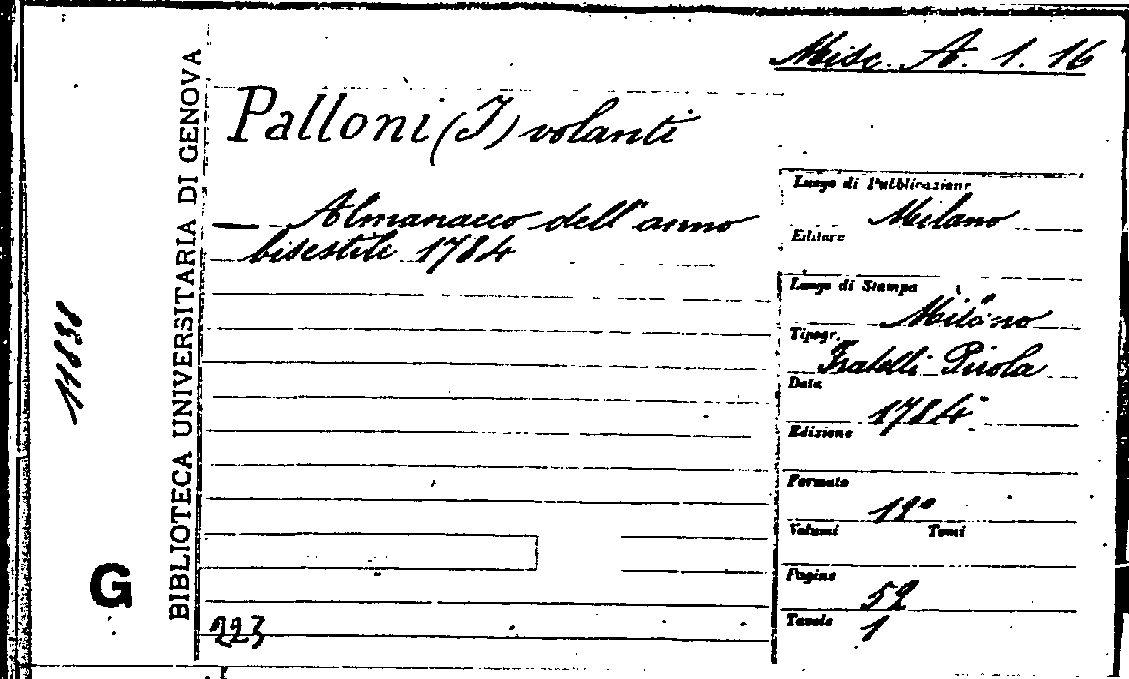 Misc. A. 1. 16
Palloni (I) volanti
— Almanacco dell'anno
bisestile 1784
Luogo di Pubblicazione
Milano
Editore
Luogo di Stampa
Milano
Tipogr.
Fratelli Pirola
Data
1784
Edizione
Formato
12°
Volumi Tomi
Pagine
52
Tavole
1
223
BIBLIOTECA UNIVERSITARIA DI GENOVA
11636
G